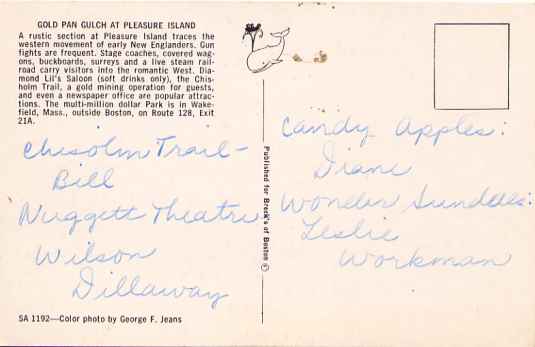 GOLD PAN GULCH AT PLEASURE ISLAND
A rustic section at Pleasure Island traces the
western movement of early New Englanders. Gun
fights are frequent. Stage coaches, covered wag-
ons, buckboards, surreys and a live steam rail-
road carry visitors into the romantic West. Dia-
mond Lil's Saloon (soft drinks only), the Chis-
holm Trail, a gold mining operation for guests,
and even a newspaper office are popular attrac-
tions. The multi-million dollar Park is in Wake-
field, Mass., outside Boston, on Route 128, Exit
21A.
Chisolm Trail-
Bill
Nuggett Theatre
Wilson
Dillaway
SA 1192—Color photo by George F. Jeans
Published for Breck's of Boston ©
Candy Apples:
Diane
Wonder Sundaes:
Leslie
Workman